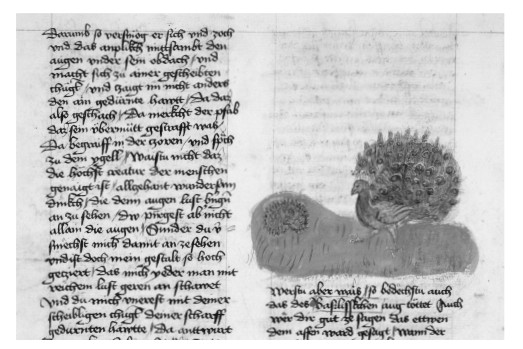 Darumb so versmog er sich vnd zoch
vnd das anplikh mitsambt den
augen vnder sein obdach / vnd
macht sich zu ainer gescheibten
chugl / vnd zaigt im nicht anders
den ain gedürnte hawtt / Da daz
also geschach / Da merkcht der pfab
daz sein übermütt gestrafft was
Da begraiff in der czoren / vnd sprach
zu dem ygell / Waistu nicht daz
die höchst creatur der menschen
genaigt ist / allczhant
dinkch / die denn augen lust
an zu sehen / nicht
allain die augen / Sunder du
smechst mich damit an ze sehen
vnd ist doch mein gestalt so hoch
gecziert / das mich yeder man mit
reichem lust geren an schawet
Vnd du mich vnerest mit deiner
scheibligen chugl deiner scharff
gedürnten hawtt / Da antwurt
Werstu aber wais / so bedechstu auch
das des Basilisckhen aug töttet Auch
wër dir gut ze sagen das ettwen
dem affen ward gesagt / Wann der